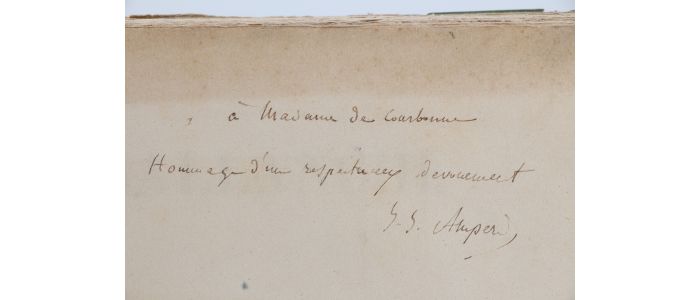 à Madame de Courbonne
Hommage d'un respectueux dévouement
J. J. Ampère